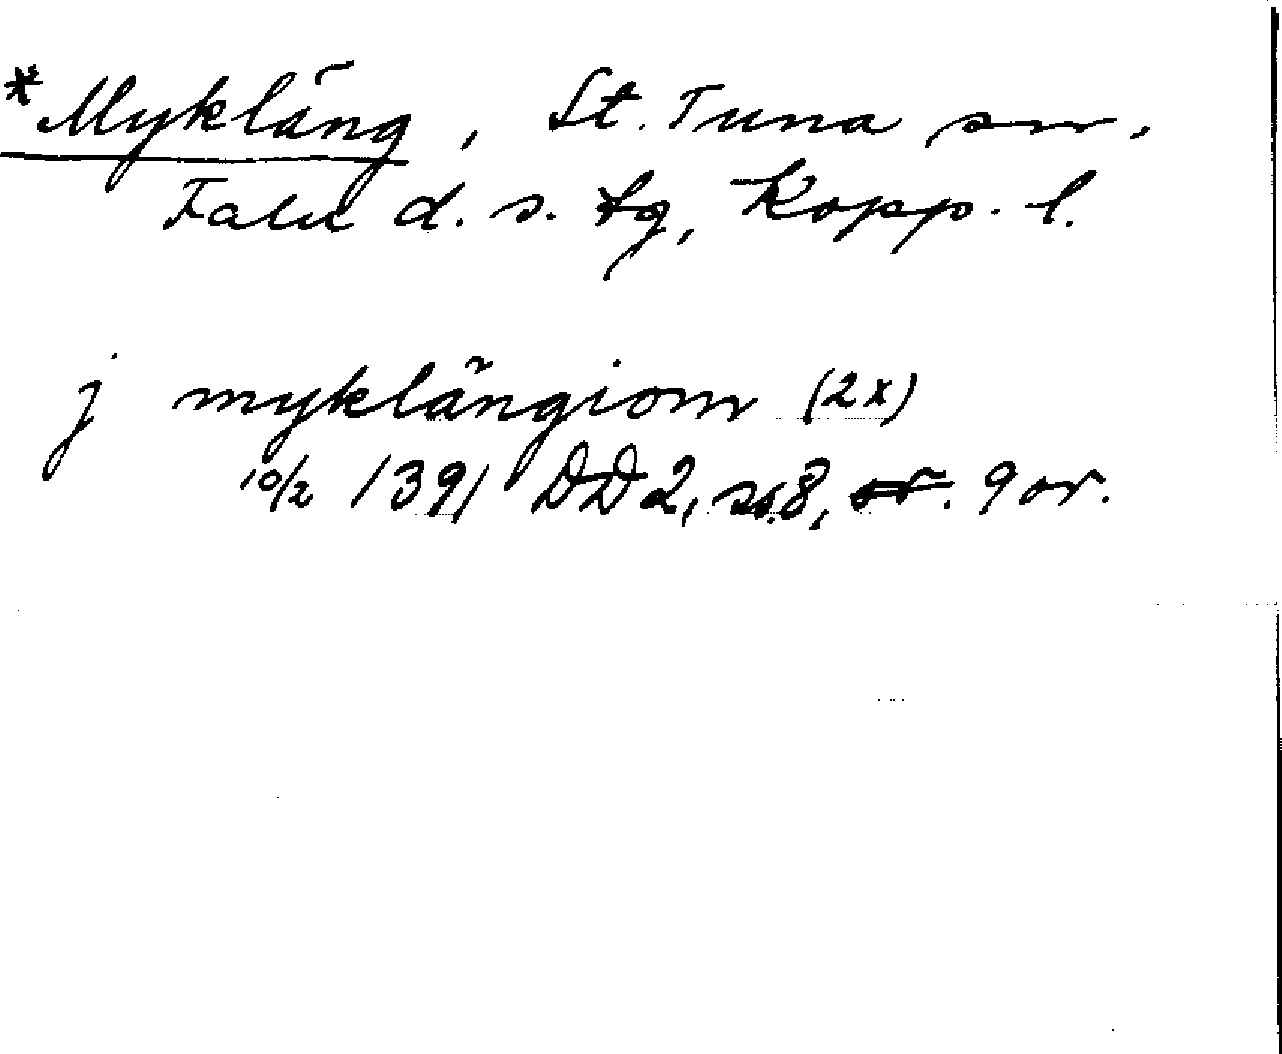 *Mykläng, St. Tuna sn.
Falu d. s. tg, Kopp. l.
j myklängiom (2x)
10/2 1391 DD 2, s. 8, or.